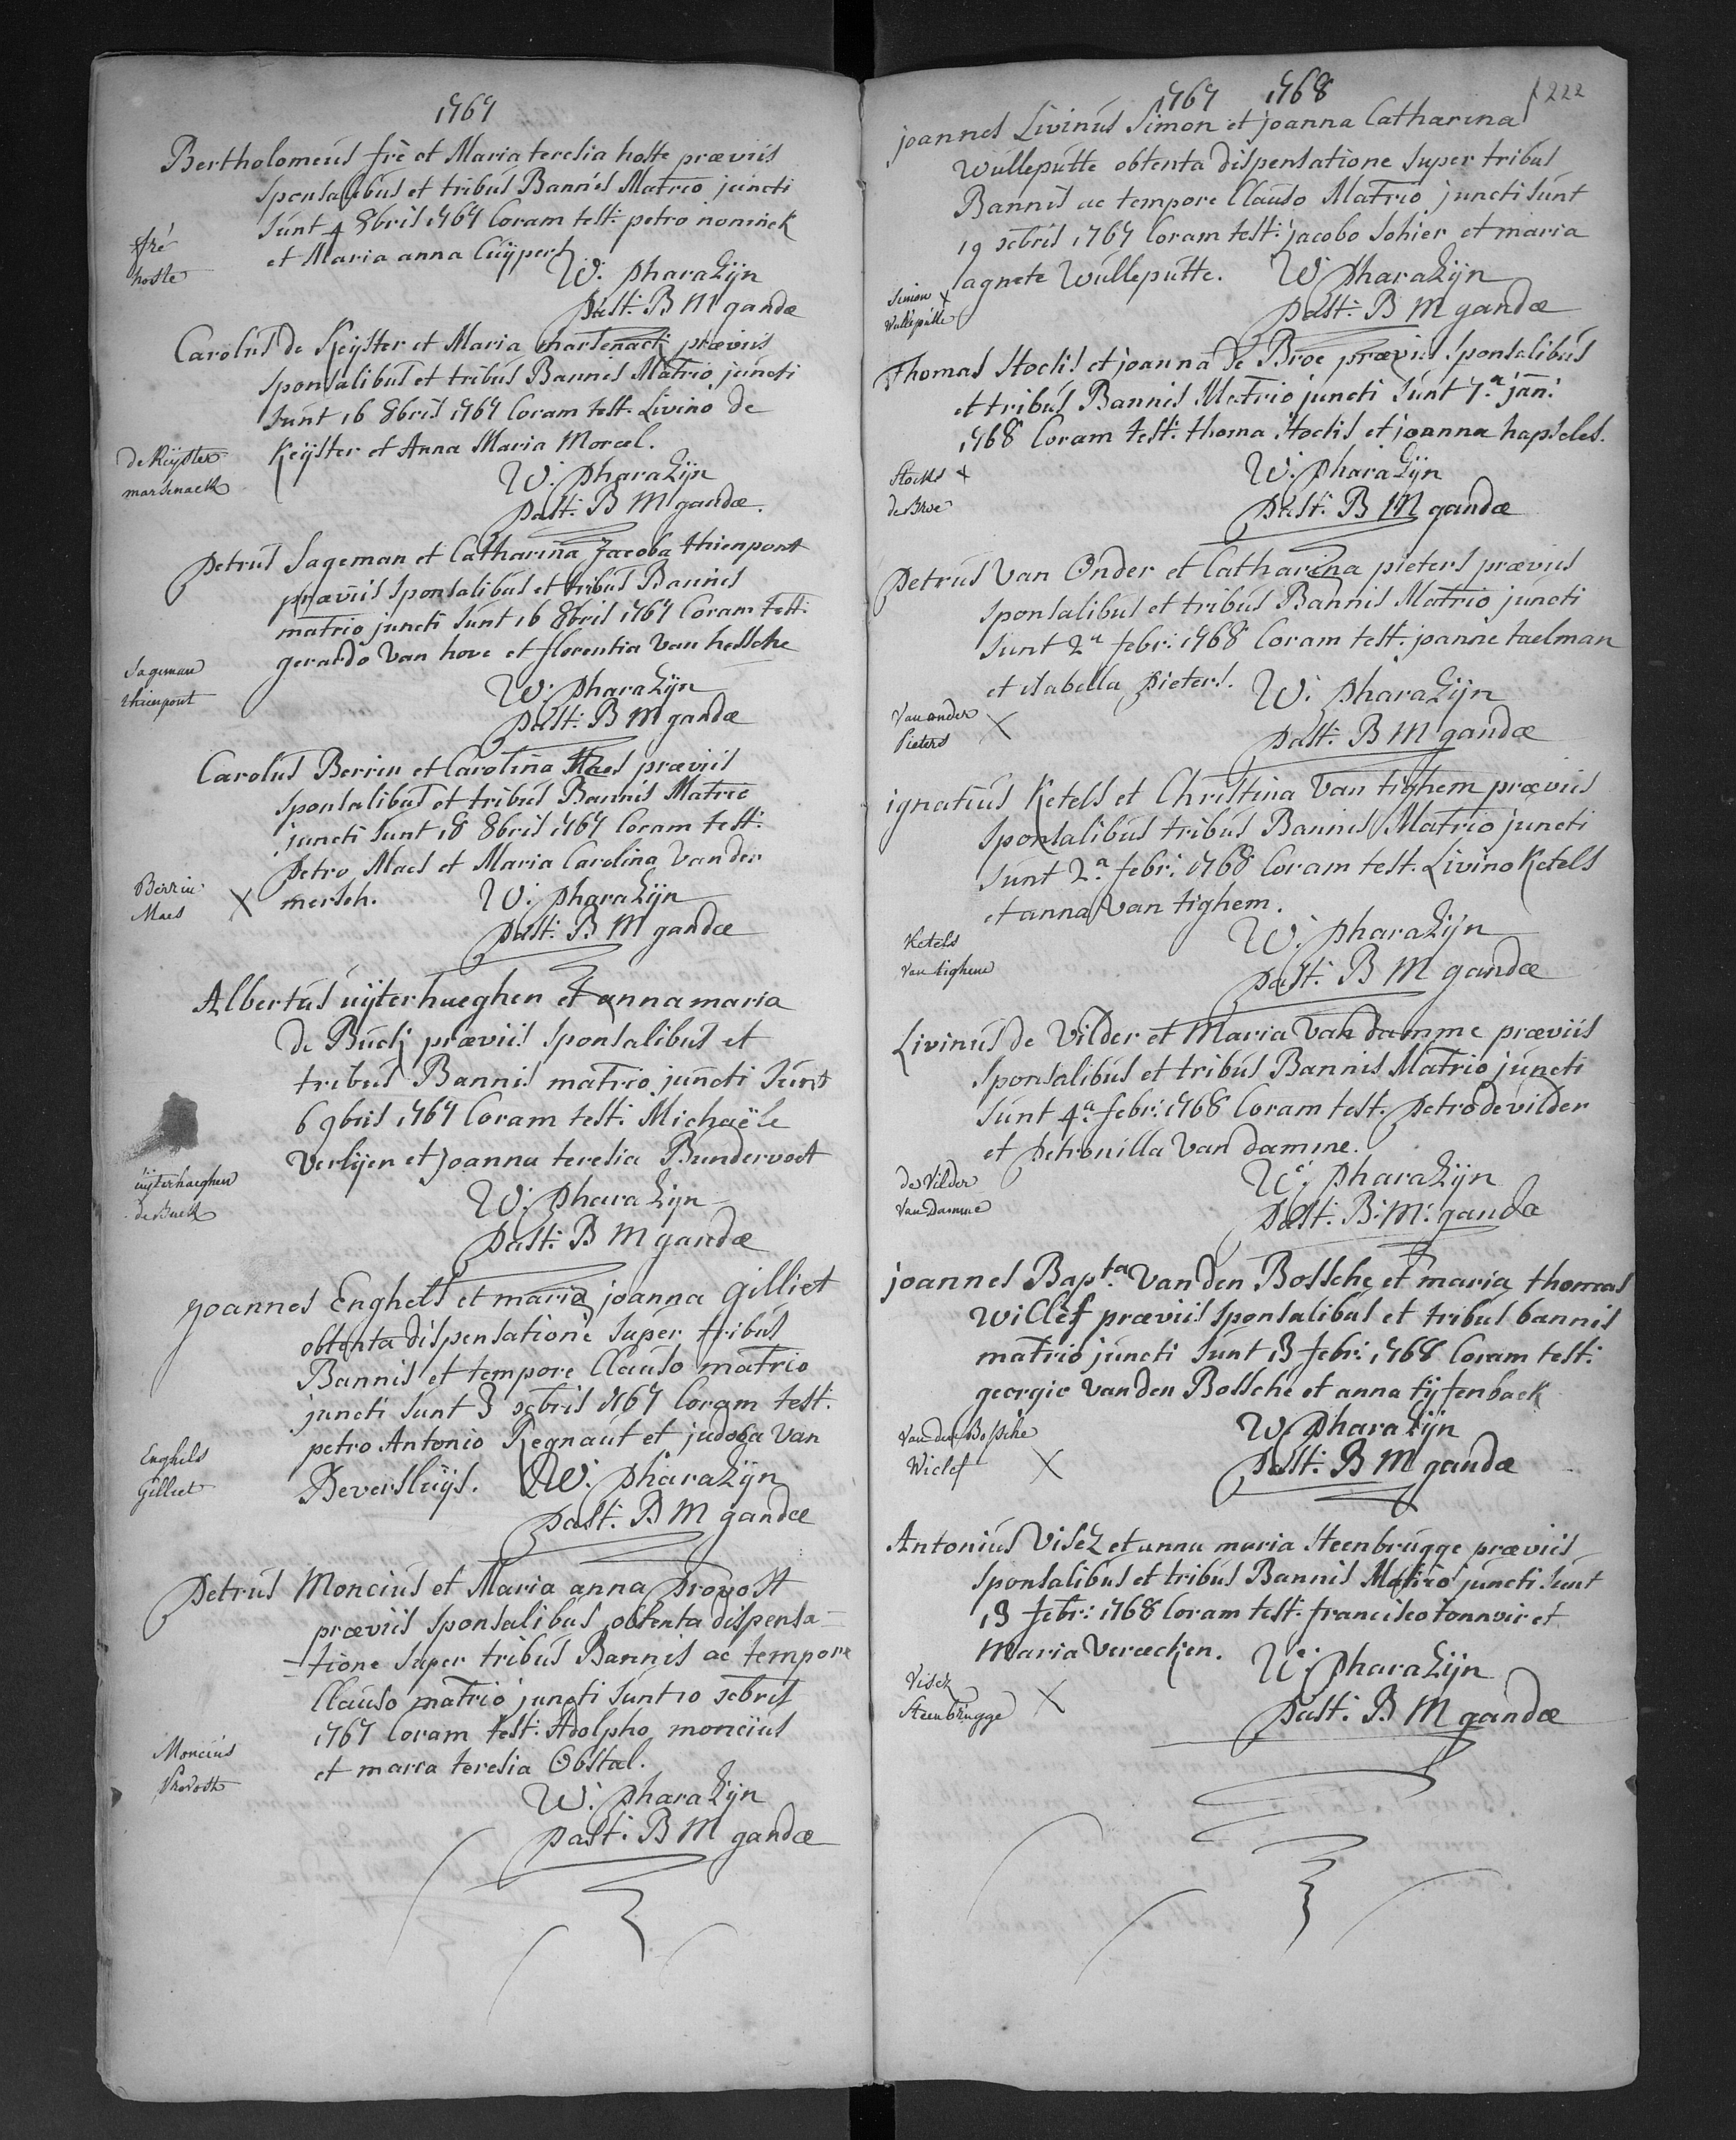 1767
Bertholomeus frè et Maria teresia hoste præviis
sponsalibus et tribus Bannis Matrio juncti
sunt 4 8bris 1767 Coram test: petro nominck
et Maria anna Cuÿpers
fré
hoste
W: pharaZijn
Past: B M gandæ
Carolus De Keÿster et Maria marsenack præviis
sponsalibus et tribus Bannis Matrio juncti
sunt 16 8bris 1767 Coram test. Livino de
Keÿster et Anna Maria Morcel.
de Keÿster
marsenack
W: pharaZijn
Past: B M gandæ.
Petrus Sageman et Catharina Jacoba thienpont
præviis sponsalibus et tribus Bannis
matrio juncti sunt 16 8bris 1767 Coram test:
gerardo Van hove et florentia Van hessche
Sageman
thienpont
W: pharaZijn
past: B M gandæ
Carolus Berrin et Carolina Maes præviis
sponsalibus et tribus Bannis Matrio
juncti sunt 18 8bris 1767 Coram test:
Petro Maes et Maria Carolina Van der
mersch.
Berrin
Maes X
W: pharaZijn
past: B M gandæ
Albertus uÿterhaeghen et anna maria
de Buck præviis sponsalibus et
tribus Bannis matrio juncti sunt
6 9bris 1767 Coram test: Michaële
Verlijen et Joanna teresia Bundervoet
uÿterhaeghen
de Buck
W: pharaZijn
Past: B M gandæ
Joannes Enghels et maria joanna Gilliet
obtenta dispensatione super tribus
Bannis et tempore Clauso matrio
juncti sunt 3 xbris 1767 Coram test:
petro Antonio Regnaut et judoca Van
Beversluÿs.
Enghels
Gilliet
W: pharaZijn
Past: B M gandæ
Petrus Moncius et Maria anna Provost
præviis sponsalibus obtenta dispensa-
-tione super tribus Bannis ac tempore
Clauso matrio juncti sunt 10 xbris
1767 Coram test: Adolpho moncius
et maria teresia Obstal.
Moncius
Provost
W: pharaZijn
past: B M gandæ
1767 1768
222
joannes Livinus Simon et joanna Catharina
Wulleputte obtenta dispensatione super tribus
Bannis ac tempore Clauso Matrio juncti sunt
19 xbris 1767 Coram test: jacobo Sohier et maria
agnete Wulleputte.
Simon X
Wulleputte
W: pharaZijn
past: B M gandæ
Thomas Stocks et joanna De Broe præviis sponsalibus
et tribus Bannis Matrio juncti sunt 7.a jan:
1768 Coram test: thoma Stocks et joanna hapseles.
Stocks X
de Broe
W: pharaZijn
Past: B M gandæ
Petrus Van Onder et Catharina pieters præviis
sponsalibus et tribus Bannis Matrio juncti
sunt 2a febr: 1768 Coram test: joanne taelman
et isabella pieters.
Van onder
Pieters X
W: pharaZijn
past: B M gandæ
ignatius Ketels et Christina Van tighem præviis
sponsalibus tribus Bannis Matrio juncti
sunt 2.a febr: 1768 Coram test. Livino Ketels
et anna Van tighem.
Ketels
Van tighem
W: pharaZijn
past: B M gandæ
Livinus de Vilder et Maria Van damme præviis
sponsalibus et tribus Bannis Matrio juncti
sunt 4.a febr: 1768 Coram test. Petro de vilder
et Petronilla Van damme.
de Vilder
Van Damme
W: pharaZijn
Past: B: M: gandæ
joannes Bapt.a Van den Bossche et maria thomas
Wiclef præviis sponsalibus et tribus bannis
matrio juncti sunt 13 febr: 1768 Coram test:
georgio Van den Bossche et anna tijtenback
Van den Bossche
Wiclef X
W: pharaZijn
Past: B M gandæ
Antonius Visez et anna maria Steenbrugge præviis
sponsalibus et tribus Bannis Matrio juncti sunt
13 febr: 1768 Coram test: francisco tonnoir et
Maria Verecken.
Visez
Steenbrugge X
W: pharaZijn
Past: B M gandæ